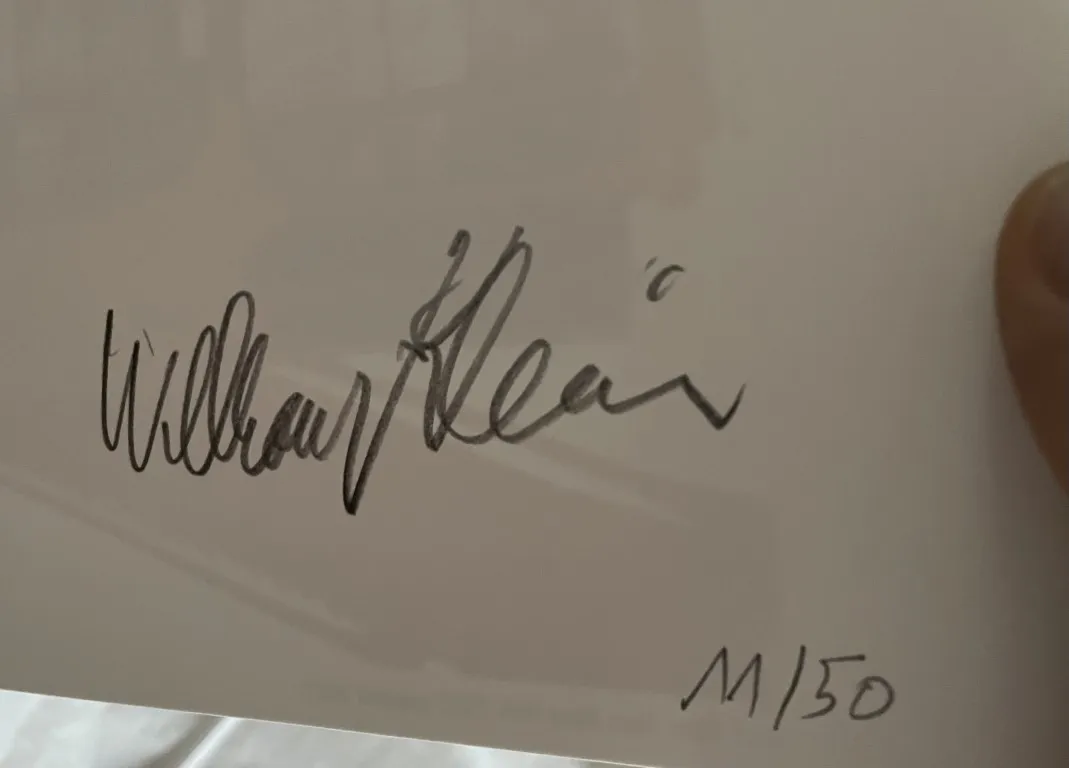 William Klein
11/50